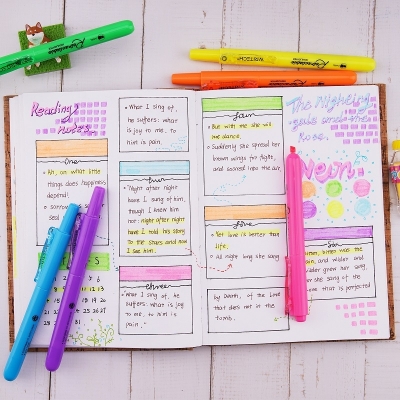 Reading
Notes
One
Ah, on what little
things does happiness
depend!
sorrow
seal
S
What I sing of,
he suffers: what
is joy to me, to
him is pain.
two
Night after night
have I sung of him,
though I knew him
not: night after night
have I told his story
to the stars and now
I see him.
three
What I sing of, he
suffers: what is joy
to me, to him is
pain."
four
But with me she will
not dance,
Suddenly she spread her
brown wings for flight,
and soared into the air.
five
Yet love is better than
life,
All night long she sang
by Death, of the Love
that dies not in the
tomb.
The Nightin
gale and the
Rose.
Neon.
Six
bitter was the
pain, and wilder and
wilder grew her song,
for she sang of the
Love that is perfected